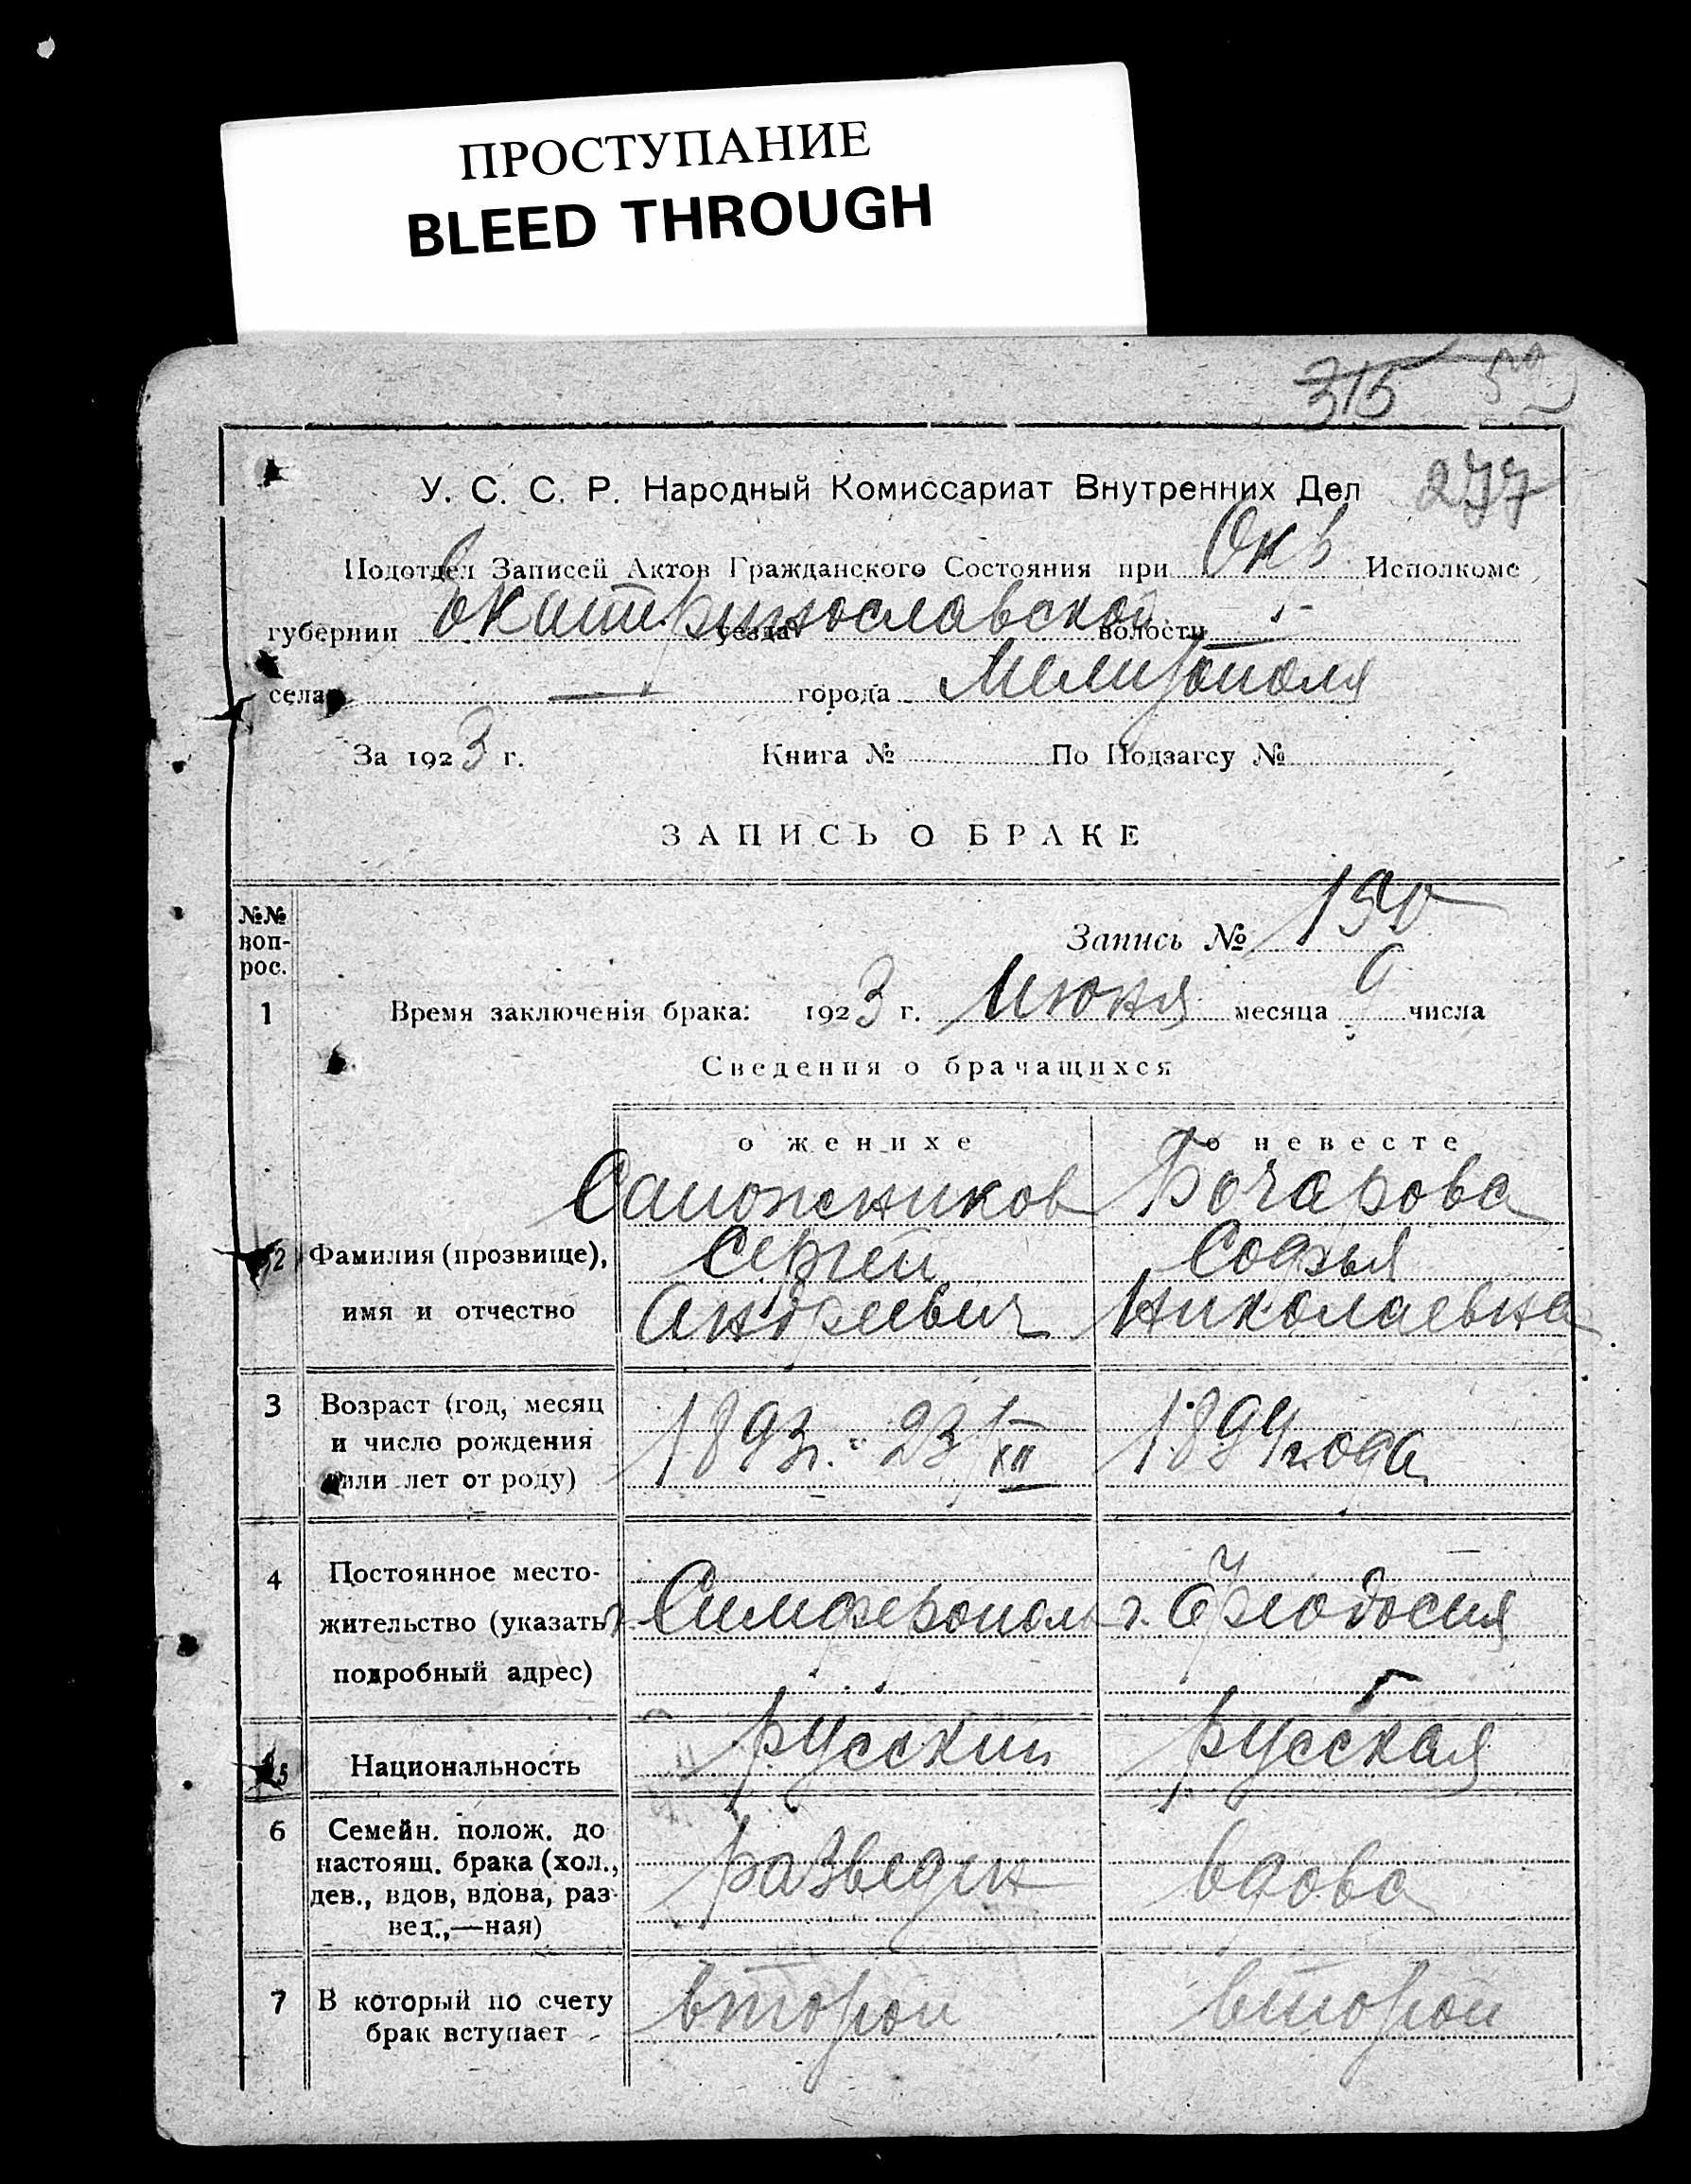 ПРОСТУПАНИЕ
BLEED THROUGH
315
277
У. С. С. Р. Народный Комиссариат Внутренних Дел
Подотдел Записей Актов Гражданского Состояния при Окр Исполкоме
губернии Екатеринославской уезда волости
села — города Мелитополя
За 1923 г. Книга № По Подзагсу №
ЗАПИСЬ О БРАКЕ
№№ воп-
рос.
Запись № 190
1 Время заключенія брака: 1923 г. Июня месяца числа
Сведения о брачащихся
о женихе о невесте
Сапожников Бочарова
2 Фамилия (прозвище), Сергей Софья
имя и отчество Андреевич Николаевна
3 Возраст (год, месяц
и число рождения 1893г. 23/XII 1894 года
или лет от роду)
4 Постоянное место-
жительство (указать г. Симферополь г. Феодосия
подробный адрес)
5 Национальность русский русская
6 Семейн. полож. до
настоящ. брака (хол., разведен вдова
дев., вдов, вдова, раз-
вед.,—ная)
7 В который по счету второй второй
брак вступает